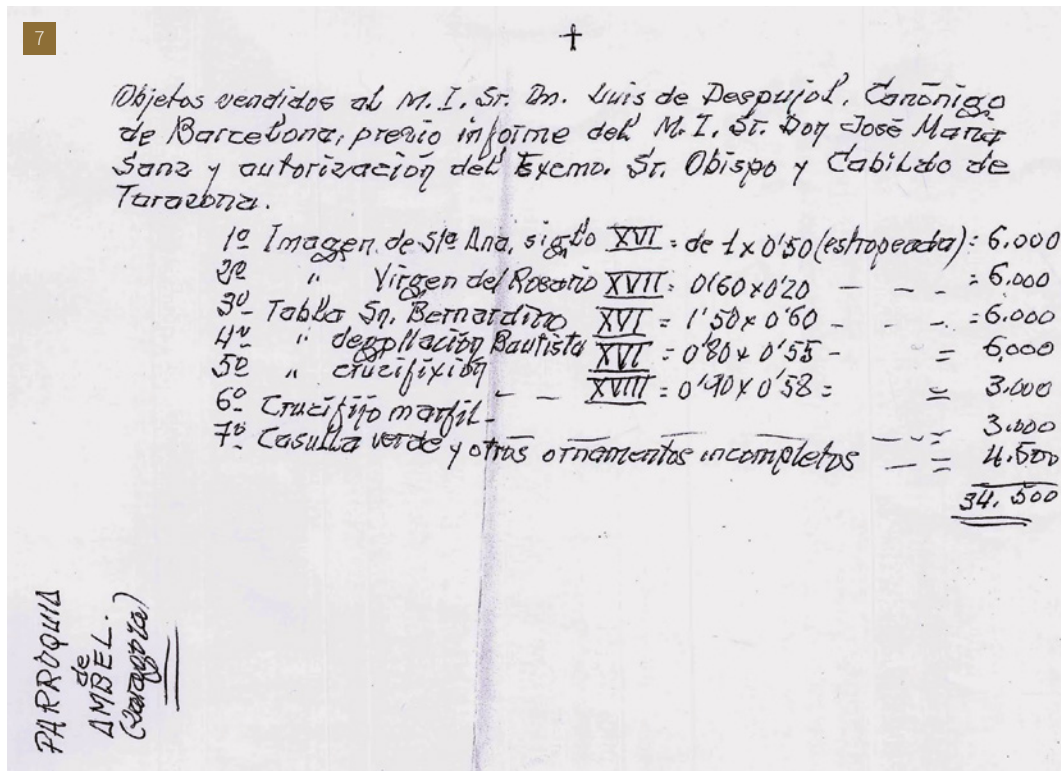 7
Objetos vendidos al M. I. Sr. Dn. Luis de Despujol, Canónigo
de Barcelona, previo informe del M. I. Sr. Don José María
Sanz y autorización del Excmo. Sr. Obispo y Cabildo de
Tarazona.
1º Imagen de Stª Ana, siglo XVI = de 1 x 0'50 (estropeada): 6.000
2º " Virgen del Rosario XVII: 0'60 x 0'20 - - - = 6.000
3º Tabla Sn. Bernardino XVI = 1'50 x 0'60 - - - = 6.000
4º " degollación Bautista XVI = 0'80 x 0'55 - = 6,000
5º " crucifixión XVIII = 0'90 x 0'58 = = 3.000
6º Crucifijo marfil - - - 3.000
7º Casulla verde y otros ornamentos incompletos - - = 4.500
34.500
PARROQUIA
de
AMBEL.
(Zaragoza)